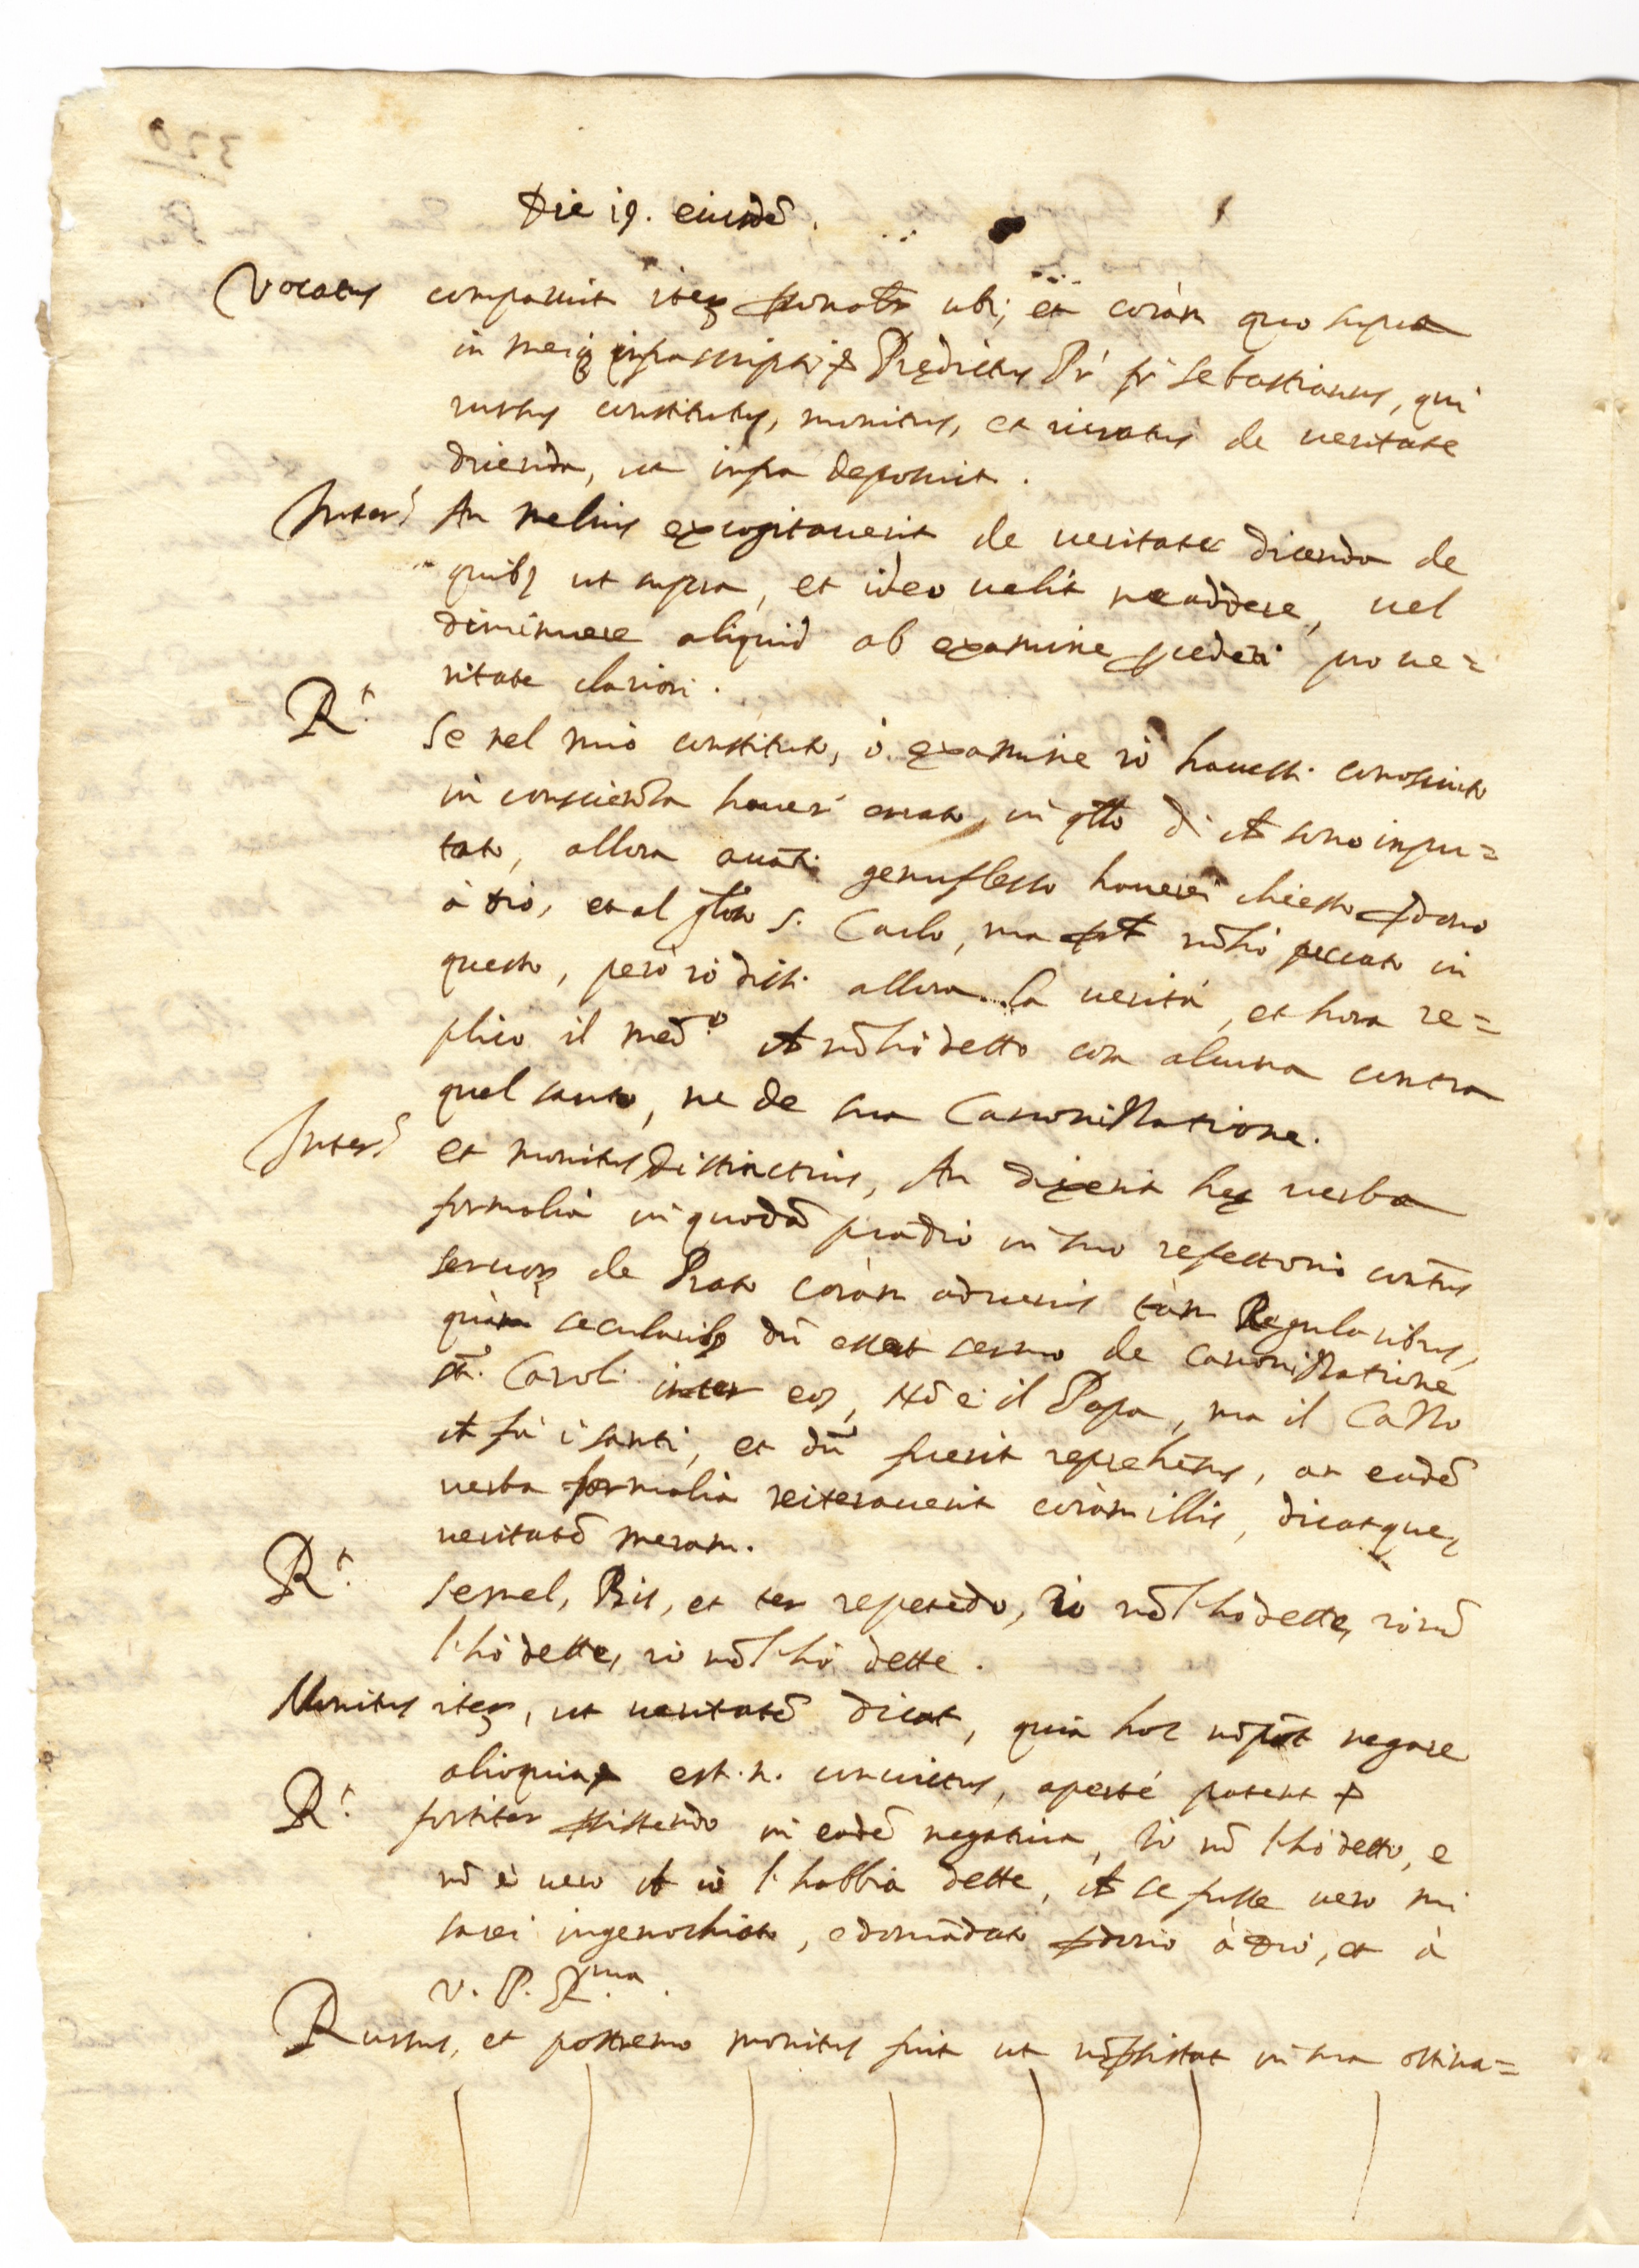 Die 19. eiusdē.
Vocatus comparuit iteȝ ꝑsonalr̄ ubi, et coràm quo supra
in meiqȝ infrascripti ꝓ Prędictus Pr̄ fr̄ Sebastianus, qui
rursus constitutus, monitus, et iuratus de veritate
dicenda, ut infra deposuit.
Interr̄ An melius excogitaverit de veritate dicenda de
quibȝ ut supra, et ideo velit addere, vel
diminuere aliquid ab examine pro ve=
ritate clariori.
R.t Se nel mio constituto, ò examine io havessi conosciuto
in conscienza haver errato, in qtto di ch sono inpu=
tato, allora avāti genuflesso haverei chiesto ꝑdono
à Dio, et al s. Carlo, ma nō hò peccato in
questo, però io dissi allora la verità, et hora re=
plico il med.o ch nō hò detto cosa alcuna contra
quel santo, ne de sua Canonizzatione.
Interr̄ et monitus distinctius, An dixerit hęc verba
formalia in quodā prādio in suo refettorio
servorȝ de Prato coràm adversis tàm Regularibus,
quàm secularibȝ dū esset sermo de canonizzatione
sti. Caroli inter eos, Nō è il Papa, ma il Cazzo
ch fà i santi, et dū fuerit reprehēsus, an eadē
verba formalia reiteraverit coràm illis, dicatque
veritatē meram.
R.t semel, Bis, et ter repetēdo, io nō l'hò dette, io nō
l'hò dette, io nō l'hò dette.
Monitus iteȝ, ut veritatē dicat, quia hoc nō pōt negare
alioquin est. n. convictus, apertè patent
R.t fortiter ꝑsistendo in eadē negativa, Io nō l'hò detto, e
nō è vero ch io l'habbia dette, ch se fusse vero mi
sarei ingenochiato, e domādato ꝑdono à Dio, et à
V. P. R.ma.
Rursus, et postremo monitus fuit ut nō ꝑsistat in sua ostina=